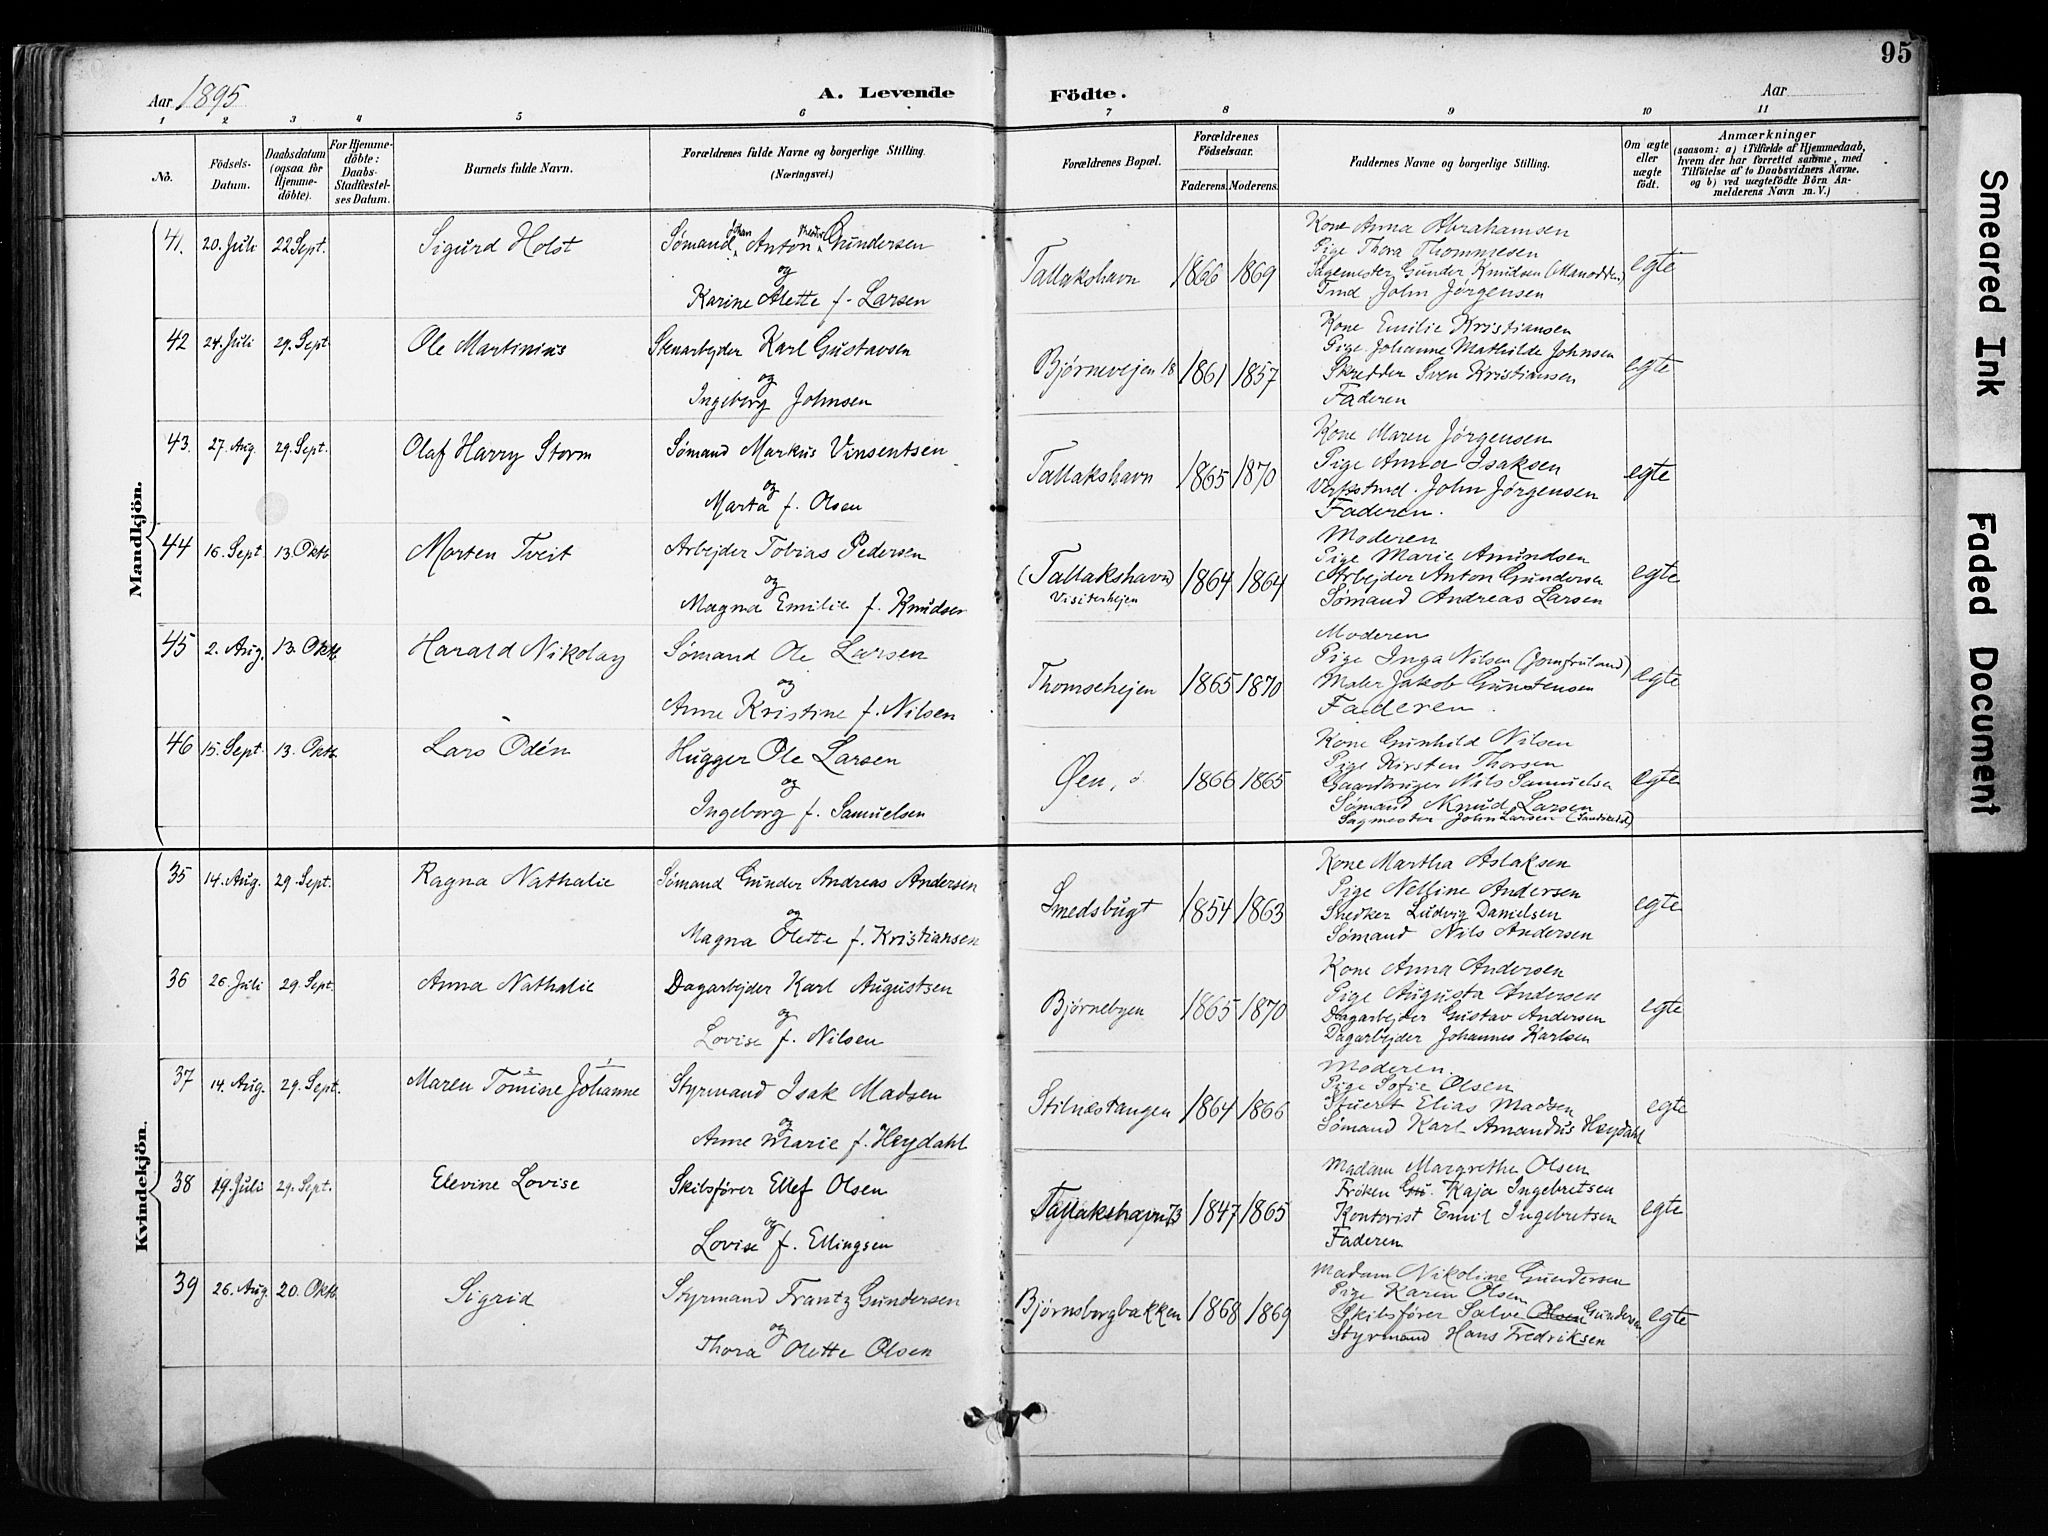 95
Aar 1895
A. Levende
Födte.
Aar
1 2 3 4 5 6 7 8 9 10 11
No.
Födsels-Datum.
Daabsdatum (ogsaa for Hjemmedöbte).
For Hjemmedöbte: Daabs-Stadfestelses Datum.
Barnets fulde Navn.
Forældrenes fulde Navne og borgerlige Stilling.
(Næringsvei.)
Forældrenes Bopæl.
Forældrenes Födselsaar.
Faderens. Moderens.
Faddernes Navne og borgerlige Stilling.
Om ægte eller uægte födt.
Anmærkninger
(saasom: a) i Tilfælde af Hjemmedaab, hvem der har forrettet samme, med Tilföielse af to Daabsvidners Navne. og b) ved uægtefödte Börn Anmelderens Navn m. V.)
Mandkjön.
41. 20. Juli 22 Sept. Sigurd Holst
Sømand Johan Anton Gundersen
og
Karine Alette f. Larsen
Tallakshavn 1866 1869
Kone Anna Abrahamsen
Pige Thora Thommesen
Sagemester Gunder Knudsen (Manodden)
Tmd. John Jørgensen
egte
42 24. Juli 29. Sept Ole Martinius
Stenarbejder Karl Gustavsen
og
Ingeborg Johnsen
Bjørnevejen 18 1861 1857
Kone Emilie Kristiansen
Pige Johanne Mathilde Johnsen
Skredder Sven Kristiansen
Faderen
egte
43. 27. Aug. 29. Sept. Olaf Harry Storm
Sømand Markus Vinsentsen
og
Marta f. Olsen
Tallakshavn 1865 1870
Kone Maren Jørgensen
Pige Anna Isaksen
Verkstmd. John Jørgensen
Faderen.
egte
44 16. Sept 13. Oktb Morten Tveit
Arbejder Tobias Pedersen
og
Magna Emilie f. Knudsen
(Tallakshavn)
Visiterhejen
1864 1864
Moderen
Pige Marie Amundsen
Arbejder Anton Gundersen
Sømand Andreas Larsen
egte
45 2. Aug. 13. Oktb. Harald Nikolay
Sømand Ole Larsen
og
Anne Kristine f. Nilsen
Thomsehejen 1865 1870
Moderen
Pige Inga Nilsen (Jomfruland)
Maler Jakob Gunstensen
Faderen.
egte
46 15. Sept. 13. Oktb. Lars Odén
Hugger Ole Larsen
og
Ingeborg f. Samuelsen
Øen, 1866 1865
Kone Gunhild Nilsen
Pige Kirsten Thorsen
Gaardbruger Nils Samuelsen
Sømand Knud Larsen
Sagmester John Larsen
egte
Kvindekjön.
35 14. Aug. 29. Sept. Ragna Nathalie
Sømand Gunder Andreas Andersen
og
Magna Olette f. Kristiansen
Smedsbugt 1854 1863
Kone Martha Aslaksen
Pige Nelline Andersen
Snedker Ludvig Danielsen
Sømand Nils Andersen
egte
36 26. Juli 29. Sept. Anna Nathalie
Dagarbejder Karl Augustsen
og
Lovise f. Nilsen
Bjørnebyen 1865 1870
Kone Anna Andersen
Pige Augusta Andersen
Dagarbejder Gustav Andersen
Dagarbejder Johannes Karlsen
egte
37 14. Aug. 29. Sept. Maren Tomine Johanne
Styrmand Isak Madsen
og
Anne Marie f. Heydahl
Stilnestangen 1864 1866
Moderen.
Pige Sofie Olsen
Stuert Elias Madsen
Sømand Karl Amandus Heydahl
egte
38 19. Juli 29. Sept. Elevine Lovise
Skibsfører Ellef Olsen
og
Lovise f. Ellingsen
Tallakshavn 73 1847 1865
Madam Margrethe Olsen
Frøken Kaja Ingebretsen
Kontorist Emil Ingebretsen
Faderen
egte
39 26. Aug. 20. Oktb. Sigrid
Styrmand Frantz Gundersen
og
Thora Olette Olsen
Bjørnsborgbakken 1868 1869
Madam Nikoline Gundersen
Pige Karen Olsen
Skibsfører Salve Olsen Gundersen
Styrmand Hans Fredriksen
egte
Smeared Ink
Faded Document